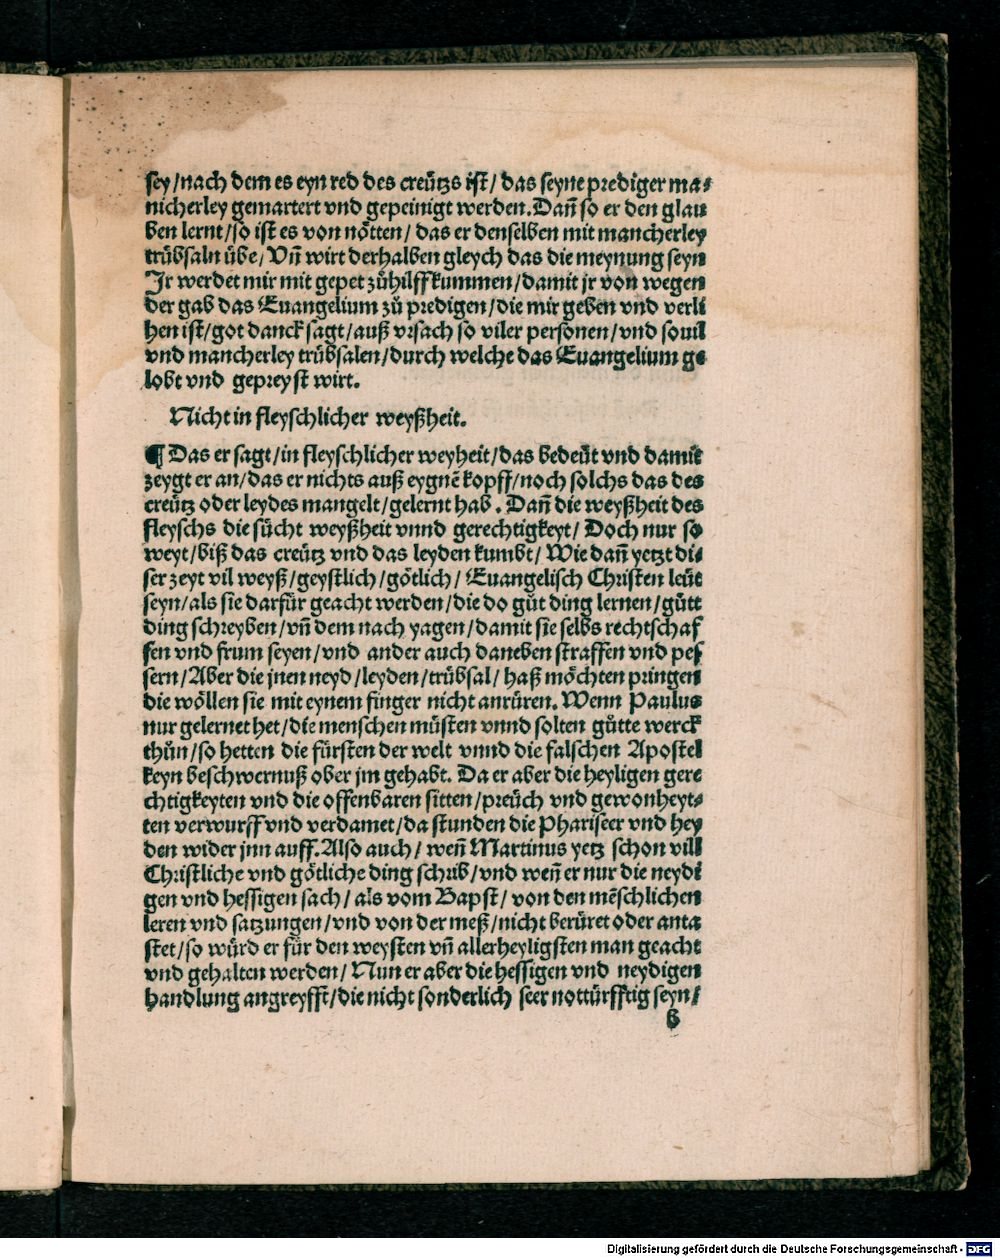 sey/nach dem es eyn red des creützs ist/das seyne prediger ma⸗
nicherley gemartert vnd gepeinigt werden.Dañ so er den glau
ben lernt/so ist es von nötten/das er denselben mit mancherley
trübsaln übe/Vñ wirt derhalben gleych das die meynung seyn
Jr werdet mir mit gepet zůhilff kummen/damit jr von wegen
der gab das Euangelium zů predigen/die mir geben vnd verli
hen ist/got danck sagt/auß vrsach so viler personen/vnd souil
vnd mancherley trübsalen/durch welche das Euangelium ge
lobt vnd gepreyst wirt.
Nicht in fleyschlicher weyßheit.
¶ Das er sagt/in fleyschlicher weyheit/das bedeüt vnd damit
zeygt er an/das er nichts auß eygnē kopff/noch solchs das des
creütz oder leydes mangelt/gelernt hab. Dañ die weyßheit des
fleyschs die sücht weyßheit vnnd gerechtigkeyt/Doch nur so
weyt/biß das creütz vnd das leyden kumbt/Wie dañ yetzt di⸗
ser zeyt vil weyß/geystlich/götlich/Euangelisch Christen leüt
seyn/als sie darfür geacht werden/die do gůt ding lernen/gůtt
ding schreyben/vñ dem nach yagen/damit sie selbs rechtschaf
fen vnd frum seyen/vnd ander auch daneben straffen vnd pes
sern/Aber die jnen neyd/leyden/trübsal/haß möchten pringen
die wöllen sie mit eynem finger nicht anrüren.Wenn Paulus
nur gelernet het/die menschen müsten vnnd solten gůtte werck
thůn/so hetten die fürsten der welt vnnd die falschen Apostel
keyn beschwernuß ober jm gehabt. Da er aber die heyligen gere
chtigkeyten vnd die offenbaren sitten/preüch vnd gewonheyt⸗
ten verwurff vnd verdamet/da stunden die Phariseer vnd hey
den wider jnn auff.Also auch/weñ Martinus yetz schon vill
Christliche vnd götliche ding schrib/vnd weñ er nur die neydi
gen vnd hessigen sach/als vom Bapst/von den mēschlichen
leren vnd satzungen/vnd von der meß/nicht berüret oder anta
stet/so würd er für den weysten vñ allerheyligsten man geacht
vnd gehalten werden/Nun er aber die hessigen vnd neydigen
handlung angreyfft/die nicht sonderlich seer nottürfftig seyn/
b
Digitalisierung gefördert durch die Deutsche Forschungsgemeinschaft - DFG